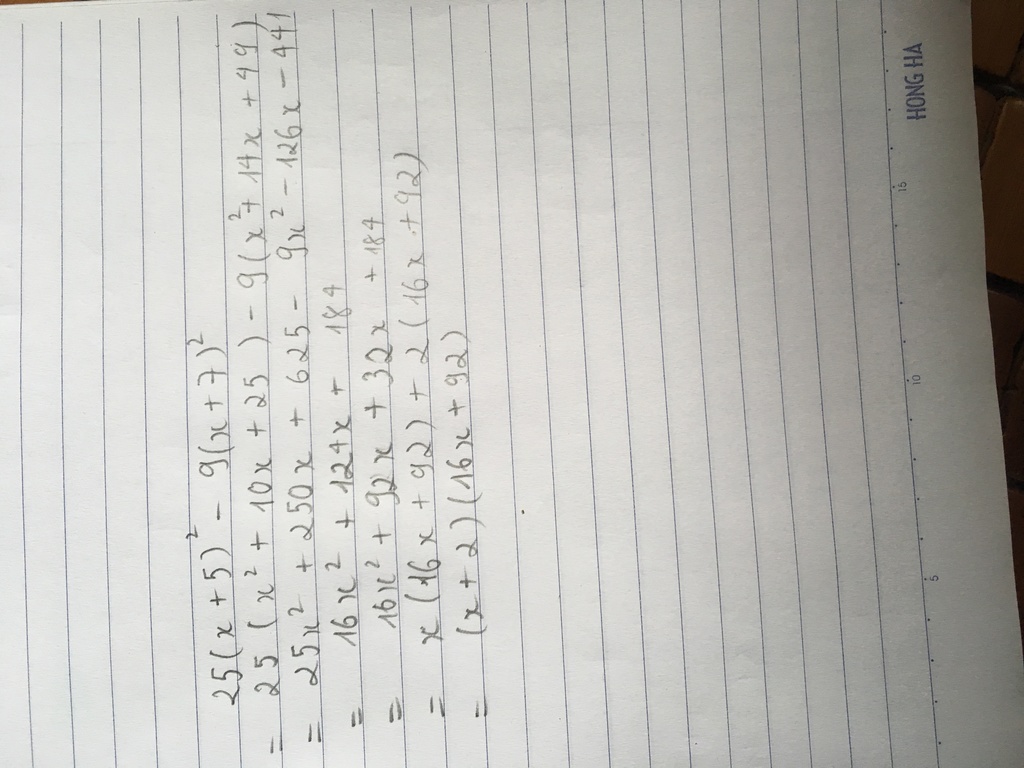 25(x+5)² - 9(x+7)²
= 25(x² + 10x + 25) - 9(x² + 14x + 49)
= 25x² + 250x + 625 - 9x² - 126x - 441
= 16x² + 124x + 184
= 16x² + 92x + 32x + 184
= x(16x + 92) + 2(16x + 92)
= (x + 2)(16x + 92)
5 10 15 HONG HA